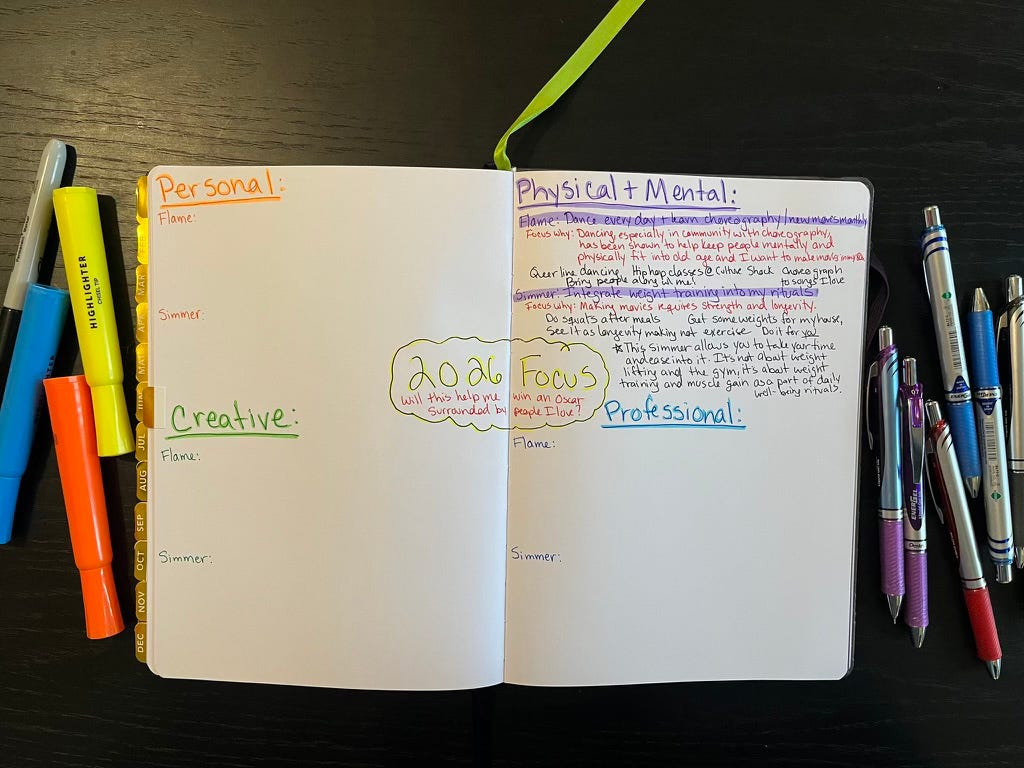 Personal:
Flame:
Simmer:
Creative:
Flame:
Simmer:
2026 Focus
will this help me win an Oscar
surrounded by people I love?
Physical + Mental:
Flame: Dance every day + learn choreography/new moves monthly
Focus why: Dancing, especially in community with choreography,
has been shown to help keep people mentally and
physically fit into old age and I want to make movies in my
Queer line dancing Hip hop classes @ Culture Shock Choreograph
Bring people along w/ me! to songs I love
Simmer: Integrate weight training into my rituals
Focus why: Making movies requires strength and longevity
Do squats after meals Get some weights for my house,
See it as longevity making not exercise Do it for you
☆This Simmer allows you to take your time
and ease into it. It's not about weight
lifting and the gym, it's about weight
training and muscle gain as a part of daily
well-being rituals.
Professional:
Flame:
Simmer:
HIGHLIGHTER
CHISEL TIP
MAR
JUL
AUG
SEP
OCT
NOV
DEC
ENERGEL
Pentel